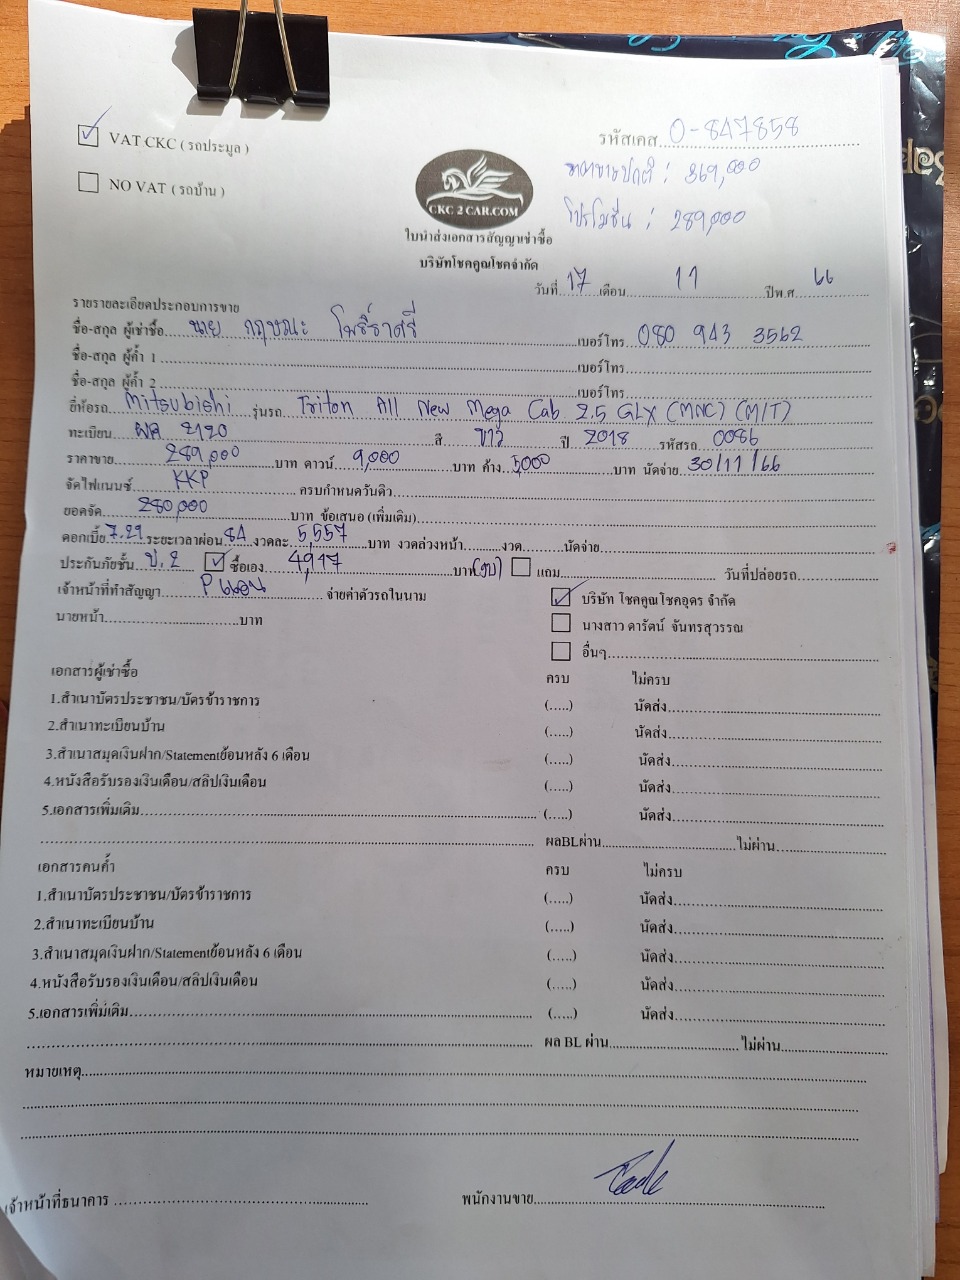 ☑ VAT CKC ( รถประมูล )
รหัสเคส 0-847858
ราคาขายปกติ : 369,000
☐ NO VAT ( รถบ้าน )
CKC 2 CAR.COM
โปรโมชั่น : 289,000
ใบนำส่งเอกสารสัญญาเช่าซื้อ
บริษัทโชคคูณโชคจำกัด
วันที่ 17 เดือน 11 ปีพ.ศ 66
รายรายละเอียดประกอบการขาย
ชื่อ-สกุล ผู้เช่าซื้อ นาย กฤษณะ โพธิ์ราศรี เบอร์โทร 080 943 3562
ชื่อ-สกุล ผู้ค้ำ 1 เบอร์โทร
ชื่อ-สกุล ผู้ค้ำ 2 เบอร์โทร
ยี่ห้อรถ Mitsubishi รุ่นรถ Triton All New Mega Cab 2.5 GLX (MNC) (M/T)
ทะเบียน ผค 2120 สี ขาว ปี 2018 รหัสรถ 0086
ราคาขาย 289,000 บาท ดาวน์ 9,000 บาท ค้าง 5,000 บาท นัดจ่าย 30/11/66
จัดไฟแนนซ์ KKP ครบกำหนดวันดิว
ยอดจัด 280,000 บาท ข้อเสนอ (เพิ่มเติม)
ดอกเบี้ย 7.29 ระยะเวลาผ่อน 84 งวดละ 5,557 บาท งวดล่วงหน้า งวด นัดจ่าย
ประกันภัยชั้น ป.2 ☑ ซื้อเอง 4,917 บาท ☐ แถม วันที่ปล่อยรถ
เจ้าหน้าที่ทำสัญญา P แอน จ่ายค่าตัวรถในนาม ☑ บริษัท โชคคูณโชคอุดร จำกัด
นายหน้า บาท ☐ นางสาว ดารัตน์ จันทรสุวรรณ
☐ อื่นๆ
เอกสารผู้เช่าซื้อ ครบ ไม่ครบ
1.สำเนาบัตรประชาชน/บัตรข้าราชการ (.....) นัดส่ง
2.สำเนาทะเบียนบ้าน (.....) นัดส่ง
3.สำเนาสมุดเงินฝาก/Statementย้อนหลัง 6 เดือน (.....) นัดส่ง
4.หนังสือรับรองเงินเดือน/สลิปเงินเดือน (.....) นัดส่ง
5.เอกสารเพิ่มเติม (.....) นัดส่ง
ผลBLผ่าน ไม่ผ่าน
เอกสารคนค้ำ ครบ ไม่ครบ
1.สำเนาบัตรประชาชน/บัตรข้าราชการ (.....) นัดส่ง
2.สำเนาทะเบียนบ้าน (.....) นัดส่ง
3.สำเนาสมุดเงินฝาก/Statementย้อนหลัง 6 เดือน (.....) นัดส่ง
4.หนังสือรับรองเงินเดือน/สลิปเงินเดือน (.....) นัดส่ง
5.เอกสารเพิ่มเติม (.....) นัดส่ง
ผล BL ผ่าน ไม่ผ่าน
หมายเหตุ
เจ้าหน้าที่ธนาคาร พนักงานขาย